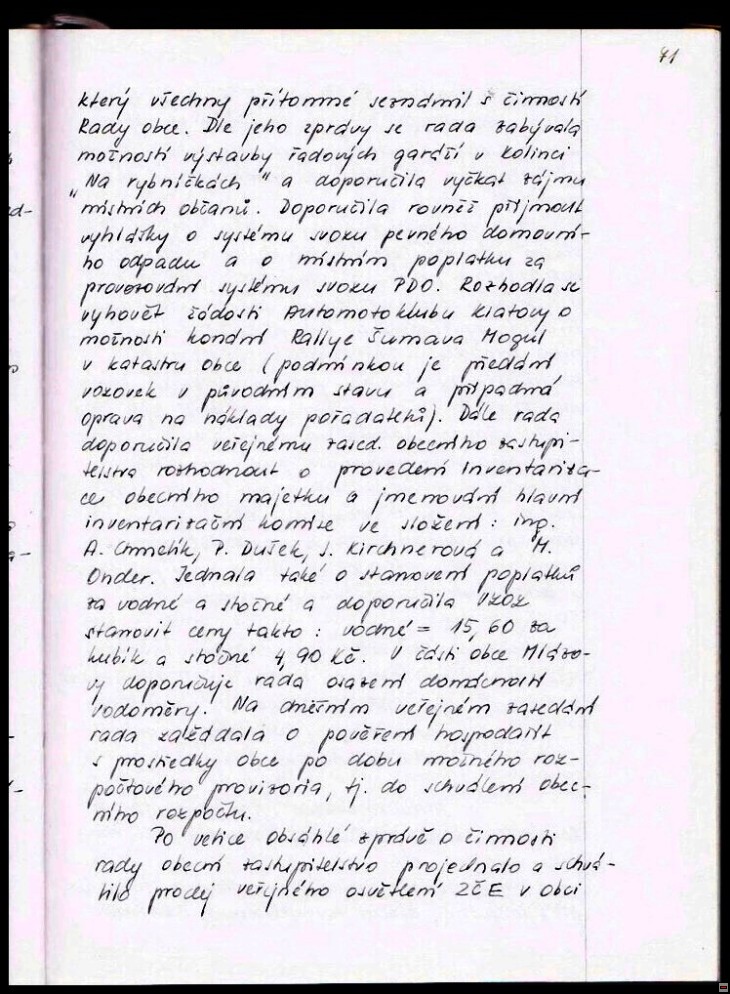 41
který všechny přítomné seznámil s činností
Rady obce. Dle jeho zprávy se rada zabývala
možností výstavby řadových garáží v Kolinci
„Na rybníčkách" a doporučila vyčkat zájmu
místních občanů. Doporučila rovněž přijmout
vyhlášky o systému svozu pevného domovní-
ho odpadu a o místním poplatku za
provozování systému svozu PDO. Rozhodla se
vyhovět žádosti Automotoklubu Klatovy o
možnosti konání Rallye Šumava Mogul
v katastru obce (podmínkou je předání
vozovek v původním stavu a případná
oprava na náklady pořadatelů). Dále rada
doporučila veřejnému zased. obecního zastupi-
telstva rozhodnout o provedení inventariza-
ce obecního majetku a jmenování hlavní
inventarizační komise ve složení: ing.
A. Chmelík, P. Dušek, J. Kirchnerová a M.
Onder. Jednala také o stanovení poplatků
za vodné a stočné a doporučila VZOZ
stanovit ceny takto: vodné = 15,60 za
kubík a stočné 4,90 Kč. V části obce Mlázo-
vy doporučuje rada osazení domácností
vodoměry. Na dnešním veřejném zasedání
rada zažádala o pověření hospodařit
s prostředky obce po dobu možného roz-
počtového provizoria, tj. do schválení obec-
ního rozpočtu.
Po velice obsáhlé zprávě o činnosti
rady obecní zastupitelstvo projednalo a schvá-
lilo prodej veřejného osvětlení ZČE v obci